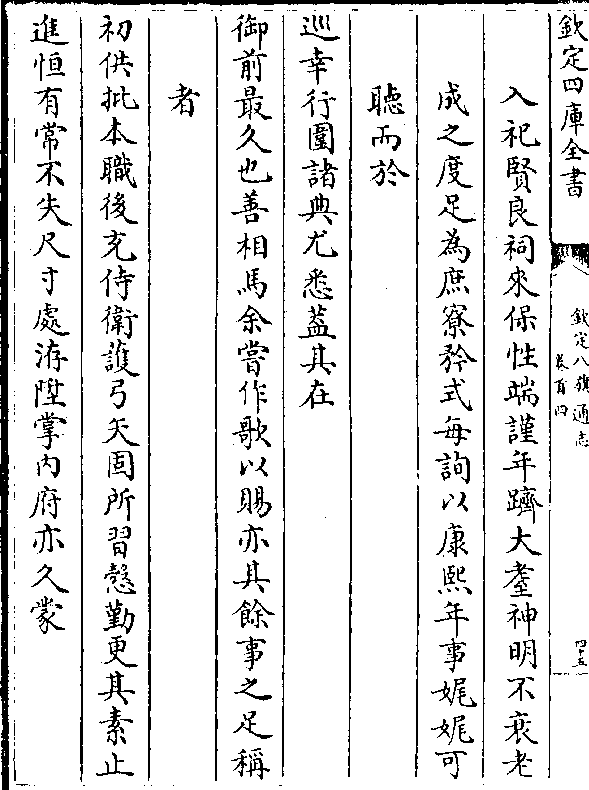 欽定四庫全書
欽定八旗通志
卷百四
四十五
入祀賢良祠來保性端謹年躋大耋神明不衰老
成之度足為庶寮矜式每詢以康熙年事娓娓可
聽而於
巡幸行圍諸典尤悉葢其在
御前最久也善相馬余嘗作歌以賜亦其餘事之足稱
者
初供批本職後充侍衛護弓矢固所習愨勤更其素止
進恒有常不失尺寸處洊陞掌內府亦久蒙